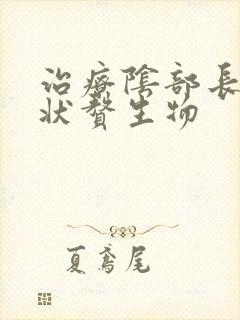 治療陰部長
狀贅生物
夏鳶尾